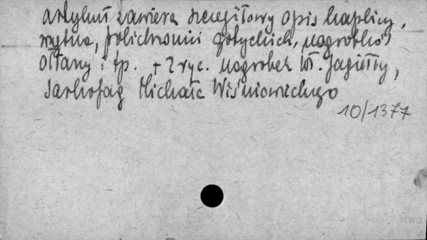 artykuł zawiera szczegółowy opis kaplicy,
polichromii gotyckich, nagrobków
Ołtarzy i tp. + 2 ryc. nagrobek Wł. Jagiełły,
Sarkofag Michała Wiśniowieckiego
10/1377